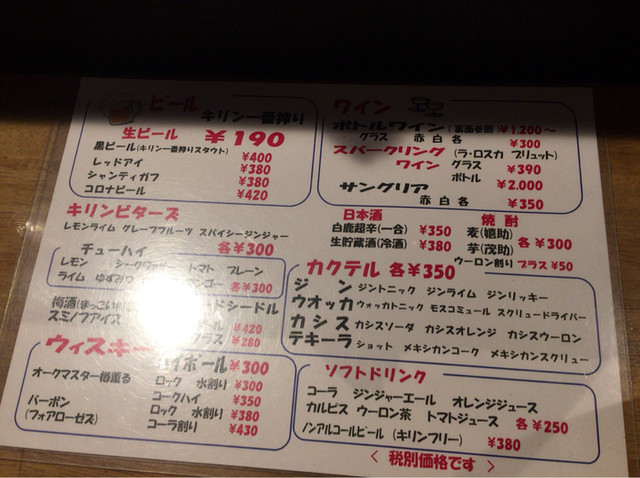 ビール
キリン一番搾り
生ビール ¥190
黒ビール(キリン一番搾りスタウト) ¥400
レッドアイ ¥380
シャンディガフ ¥380
コロナビール ¥420
キリンビターズ
レモンライム グレープフルーツ スパイシージンジャー
各¥300
チューハイ
レモン トマト プレーン
ライム
各¥300
梅酒
スミノフアイス
ードシードル
ボトル ¥420
グラス ¥280
ウィスキー
ハイボール ¥300
オークマスター樽薫る ロック 水割り ¥300
コークハイ ¥350
バーボン
(フォアローゼズ)
ロック 水割り ¥380
コーラ割り ¥430
ワイン
ボトルワイン(裏面参照) ¥1,200〜
グラス 赤白各 ¥300
スパークリング (ラ・ロスカ ブリュット)
ワイン グラス ¥390
ボトル ¥2,000
サングリア 赤白各 ¥350
日本酒
白鹿超辛(一合) ¥350
生貯蔵酒(冷酒) ¥380
焼酎
麦(嬉助)
芋(茂助)
各¥300
ウーロン割り プラス¥50
カクテル 各¥350
ジン ジントニック ジンライム ジンリッキー
ウオッカ ウォッカトニック モスコミュール スクリュードライバー
カシス カシスソーダ カシスオレンジ カシスウーロン
テキーラ ショット メキシカンコーク メキシカンスクリュー
ソフトドリンク
コーラ ジンジャーエール オレンジジュース
カルピス ウーロン茶 トマトジュース 各¥250
ノンアルコールビール (キリンフリー) ¥380
< 税別価格です >